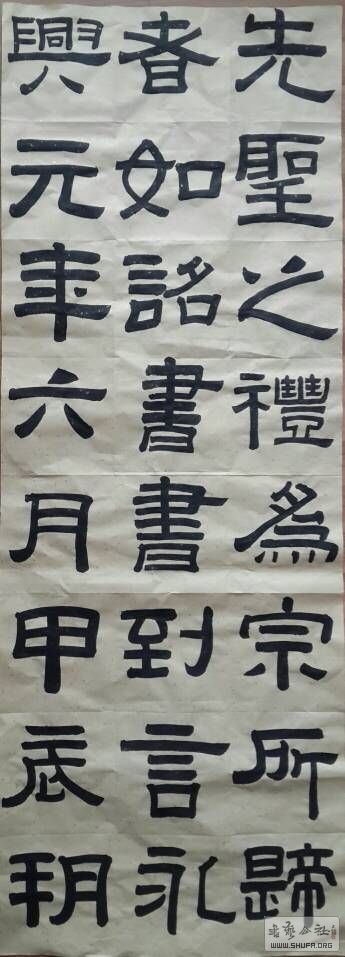 先聖之禮爲宗所歸
者如詔書書到言永
興元年六月甲辰朔
书艺公社
WWW.SHUFA.ORG